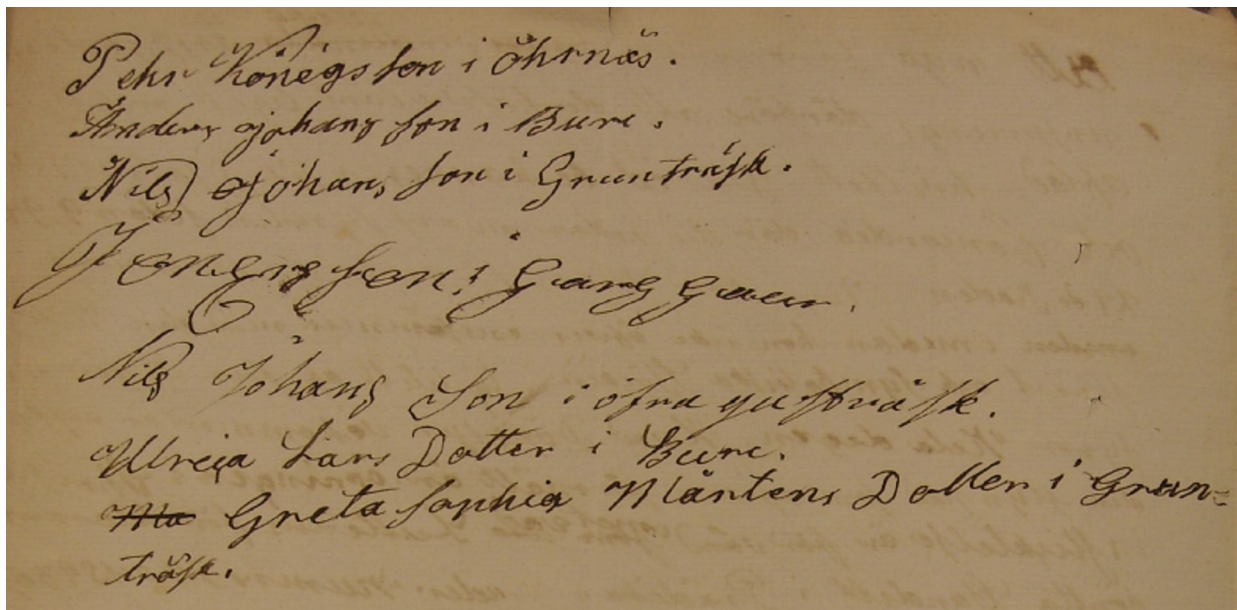 Pehr Könégsson i öhrnäs.
Anders Johans Son i Bure.
Nils Johans Son i Grunträsk.
Son i
Nils Johans Son i öfra gustträsk.
Ulreca Lars Dotter i Bure.
Greta Sophia Mårtens Dotter i Grun-
träsk.